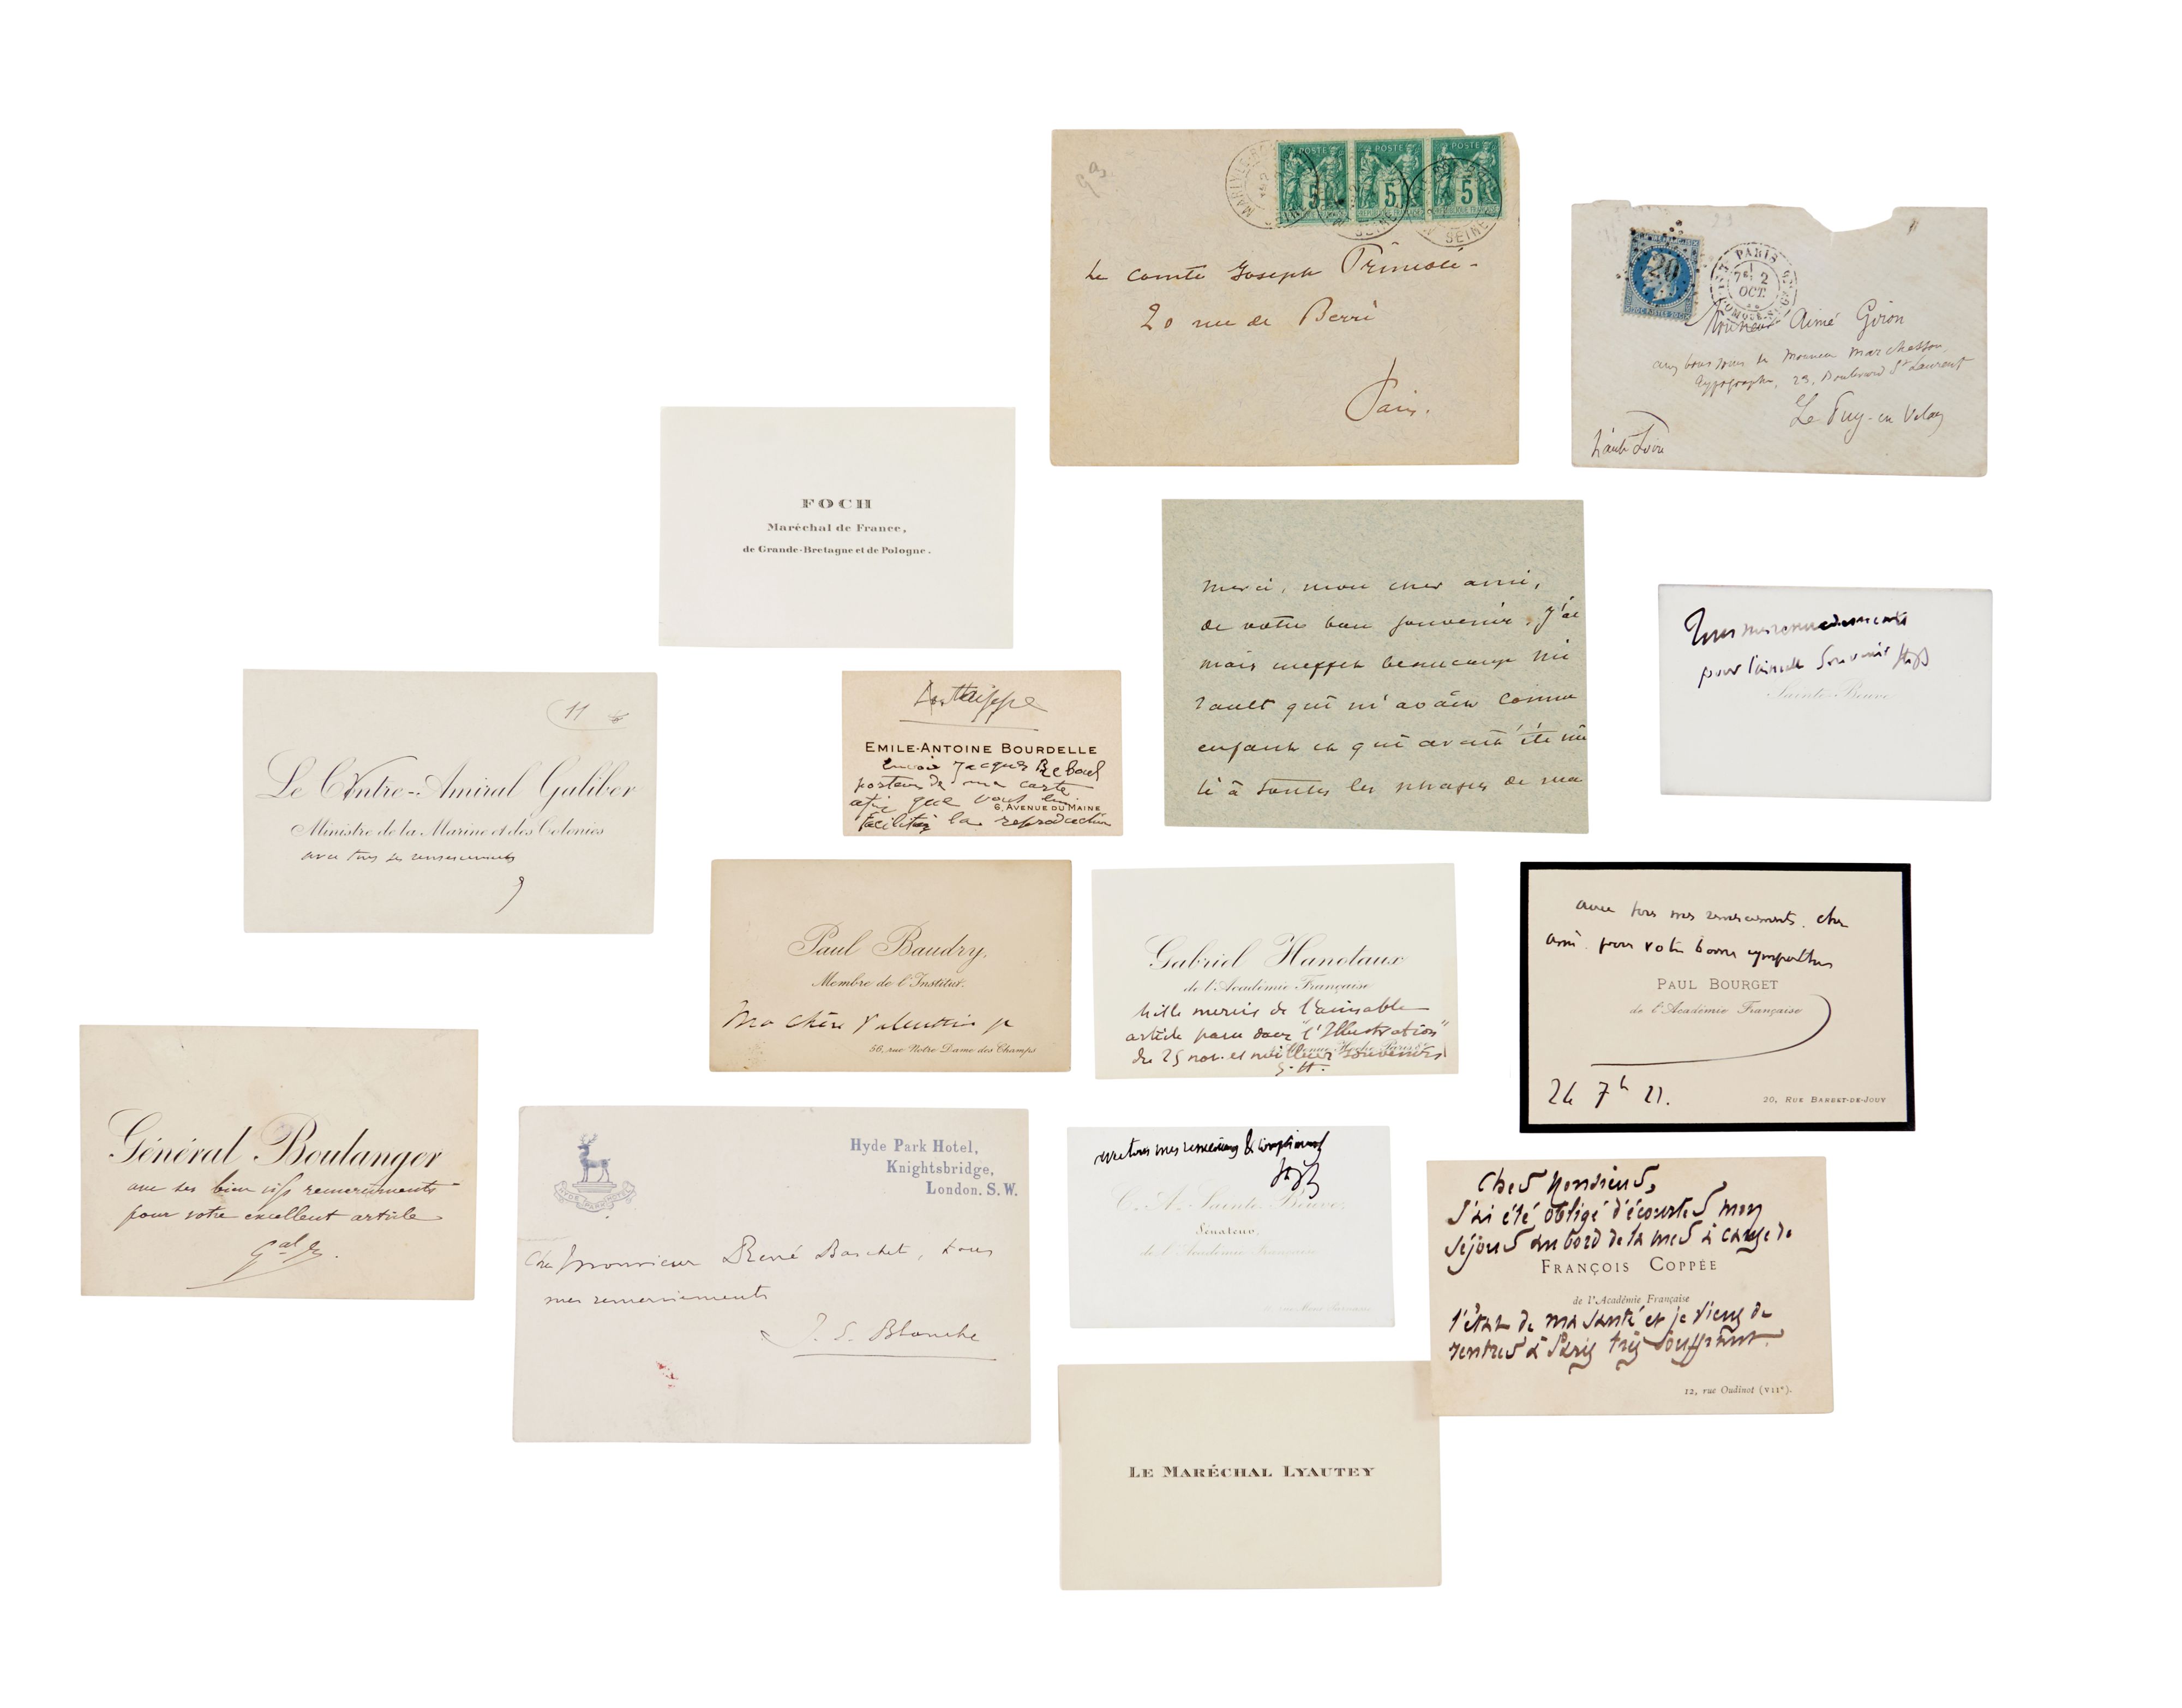 POSTE POSTE POSTE
5 5 5
SEINE
Le comte Joseph Primoli
20 rue de Berri
Paris.
20
PARIS
7E 2
OCT.
Monsieur Aimé Giron
Monsieur Marchessou,
typographe, 23, Boulevard St Laurent
Le Puy-en Velay
Haute Loire
FOCH
Maréchal de France,
de Grande-Bretagne et de Pologne.
Merci, mon cher ami,
de votre bon souvenir. J'ai
mais beaucoup
qui m'avait connu
enfant et qui avait été
à toutes les phases de ma
Tous mes remerciements
pour l'aimable souvenir
Sainte-Beuve
11
Le Contre-Amiral Galiber
Ministre de la Marine et des Colonies
avec tous ses remerciements
G
EMILE-ANTOINE BOURDELLE
envoie Jacques Reboul
porteur de ma carte
afin que vous lui
6, AVENUE DU MAINE
facilitiez la reproduction
Paul Baudry,
Membre de l'Institut.
Ma chère Valentine je
56, rue Notre Dame des Champs
Gabriel Hanotaux
de l'Académie Française
Mille mercis de l'aimable
article paru dans "l'Illustration"
du 25 nov. et meilleurs souvenirs
G.H.
avec tous mes remerciements, cher
ami, pour votre bonne sympathie
PAUL BOURGET
de l'Académie Française
24 7b 21.
20, RUE BARBET-DE-JOUY
Général Boulanger
avec ses bien vifs remerciements
pour votre excellent article
Gal B.
Hyde Park Hotel,
Knightsbridge,
London. S.W.
HYDE PARK HOTEL
Cher Monsieur René Baschet, tous
mes remerciements
J. E. Blanche
avec tous mes remerciements & compliments
C. A. Sainte-Beuve,
Sénateur,
de l'Académie Française
Cher Monsieur,
J'ai été obligé d'écourter mon
séjour au bord de la mer à cause de
FRANÇOIS COPPÉE
de l'Académie Française
l'état de ma santé et je viens de
rentrer à Paris très souffrant.
12, rue Oudinot (VIIe).
LE MARÉCHAL LYAUTEY